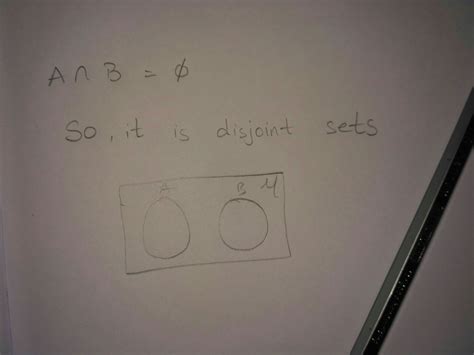 A ∩ B = ϕ
So, it is disjoint sets
A B μ